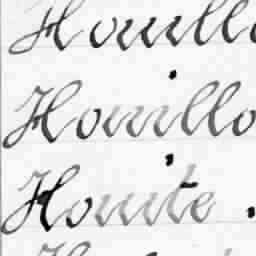 Houillo
Houillo
Houite.